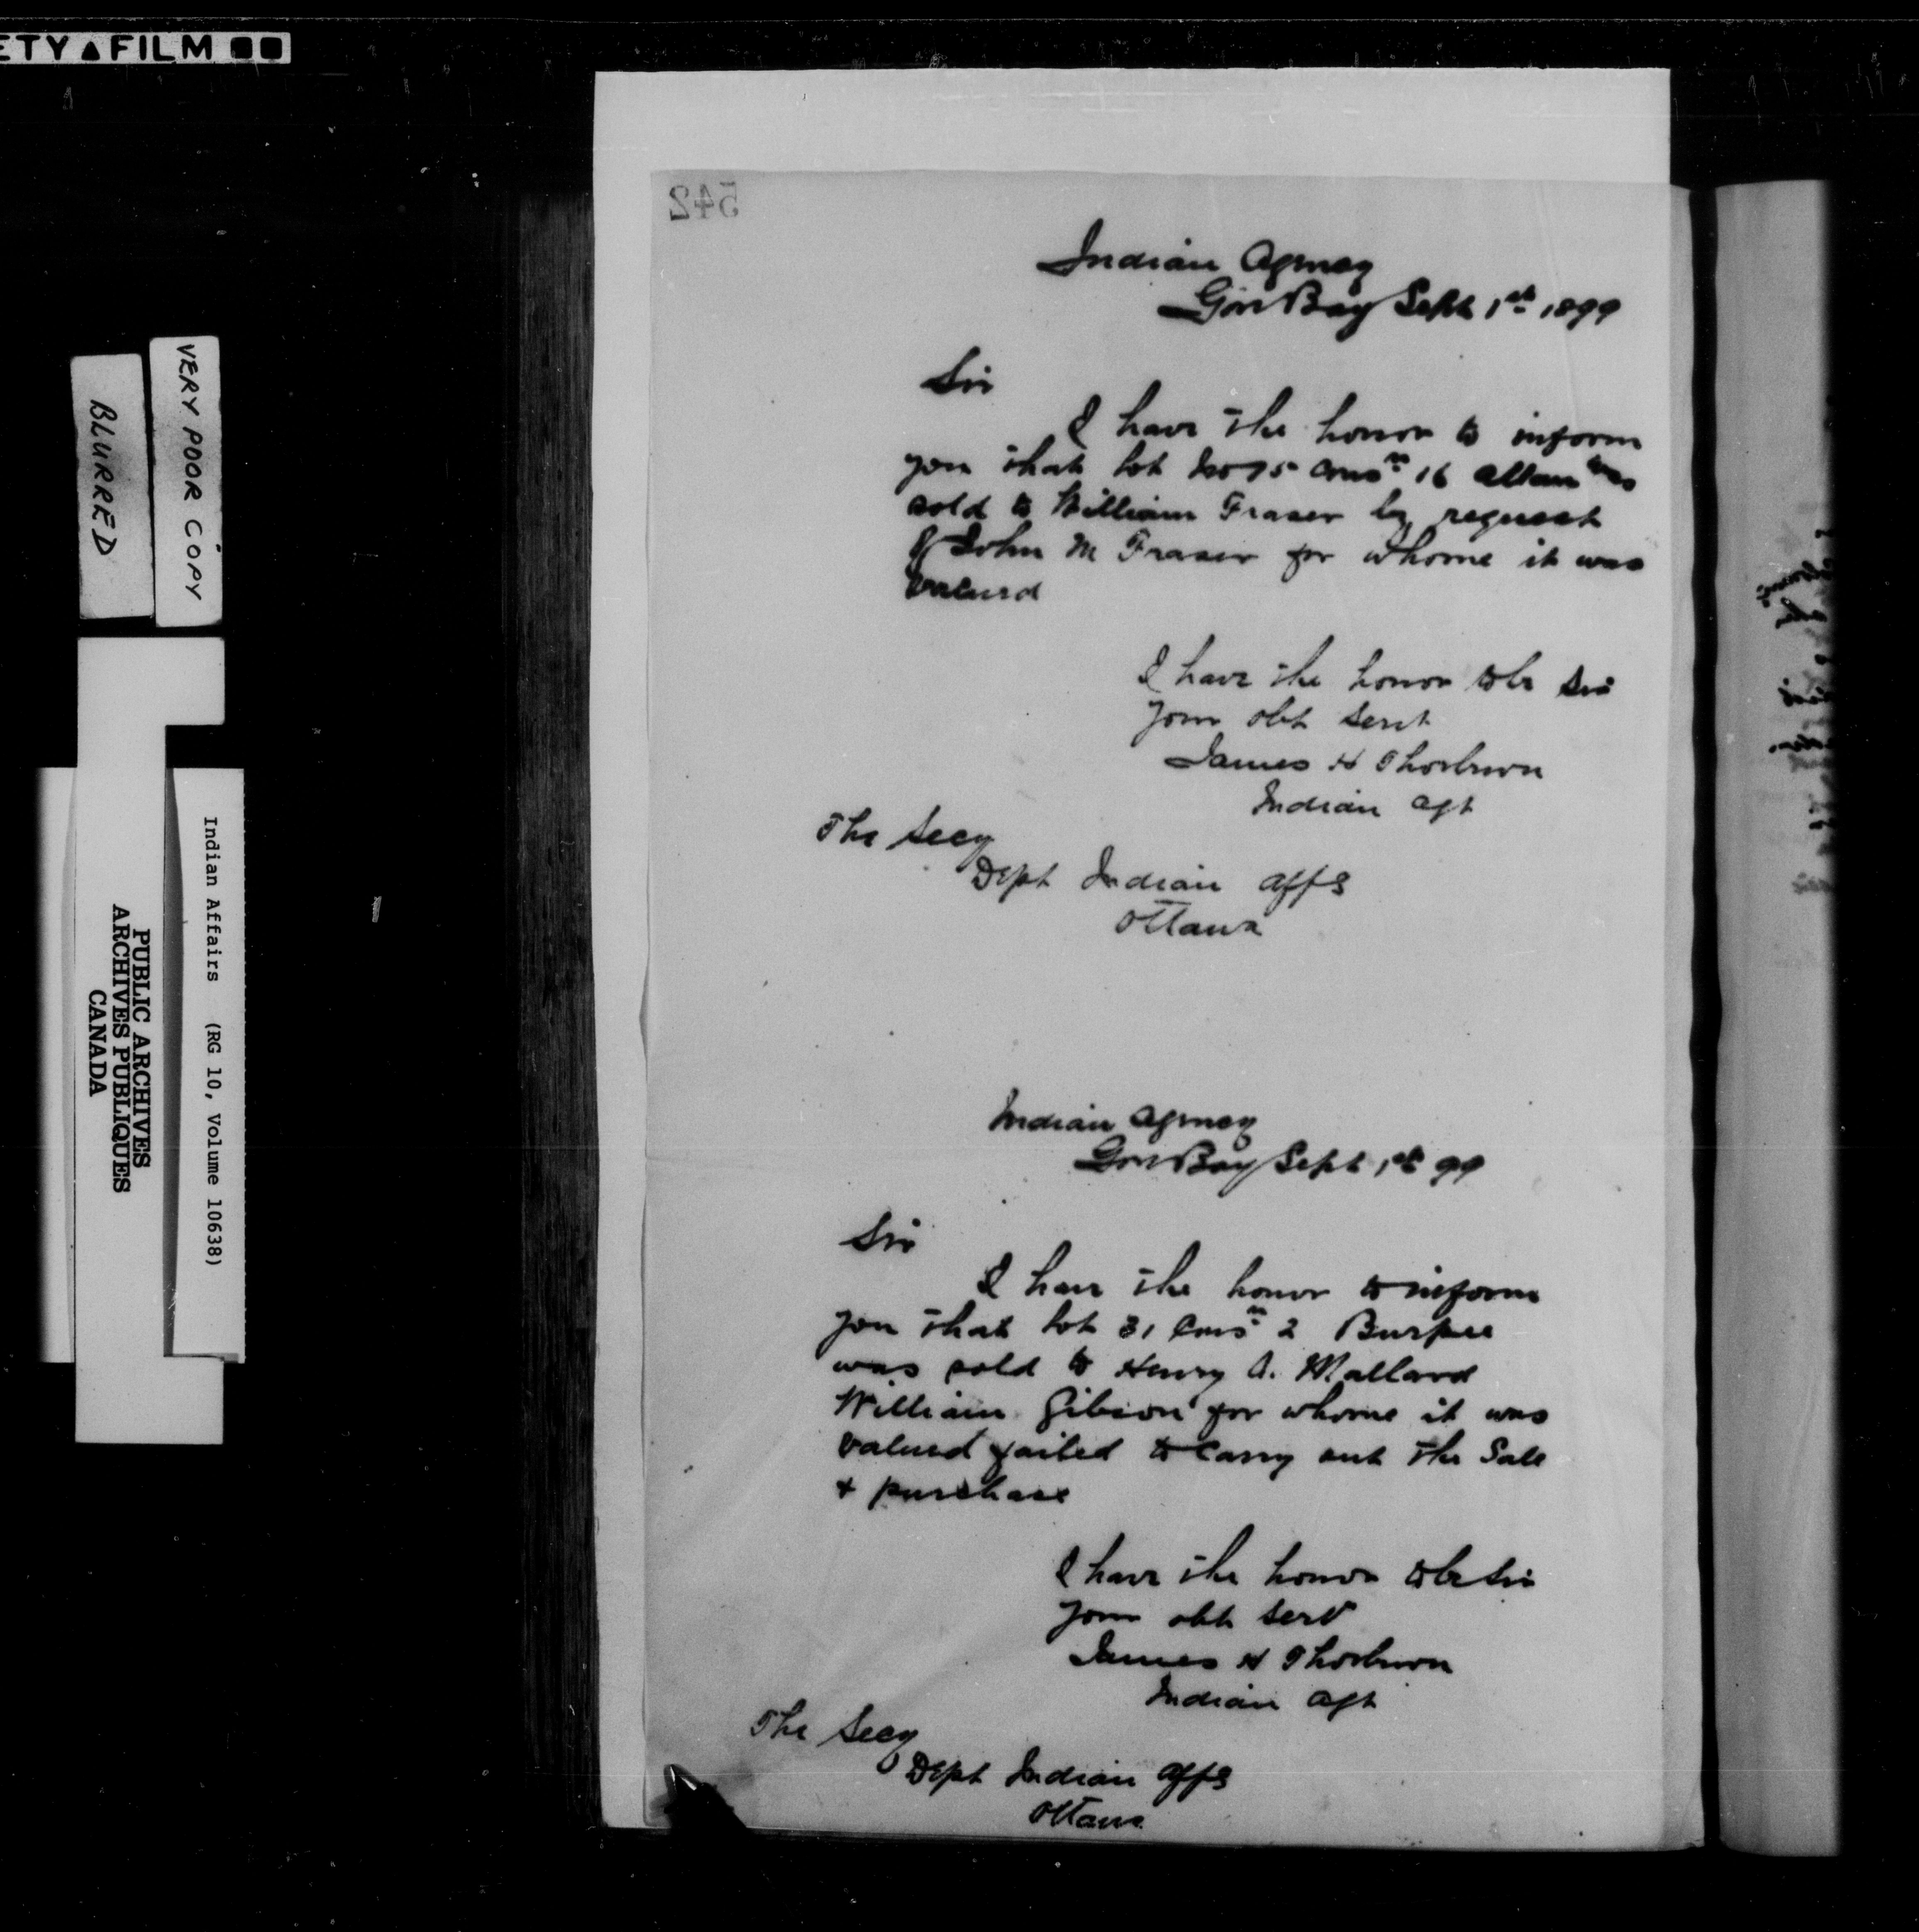 ETY FILM
542
Indian Agency
Gore Bay Sept 1st 1899
Sir
I have the honor to inform
you that lot No 75 Conssn 16 Allan was
sold to William Fraser by request
of John M Fraser for whome it was
valued
I have the honor to be Sir
your obt Servt
James H Thorburn
Indian Agt
The Secy
Dept Indian Affs
Ottawa
Indian Agency
Gore Bay Sept 1st 99
Sir
I have the honor to inform
you that lot 31 Conssn 2 Burpee
was sold to Henry A. Mallard
William Gibson for whome it was
valued failed to carry out the Sale
+ purchase
I have the honor to be Sir
your obt Servt
James H Thorburn
Indian Agt
The Secy
Dept Indian Affs
Ottawa
VERY POOR COPY
BLURRED
Indian Affairs (RG 10, Volume 10638)
PUBLIC ARCHIVES
ARCHIVES PUBLIQUES
CANADA